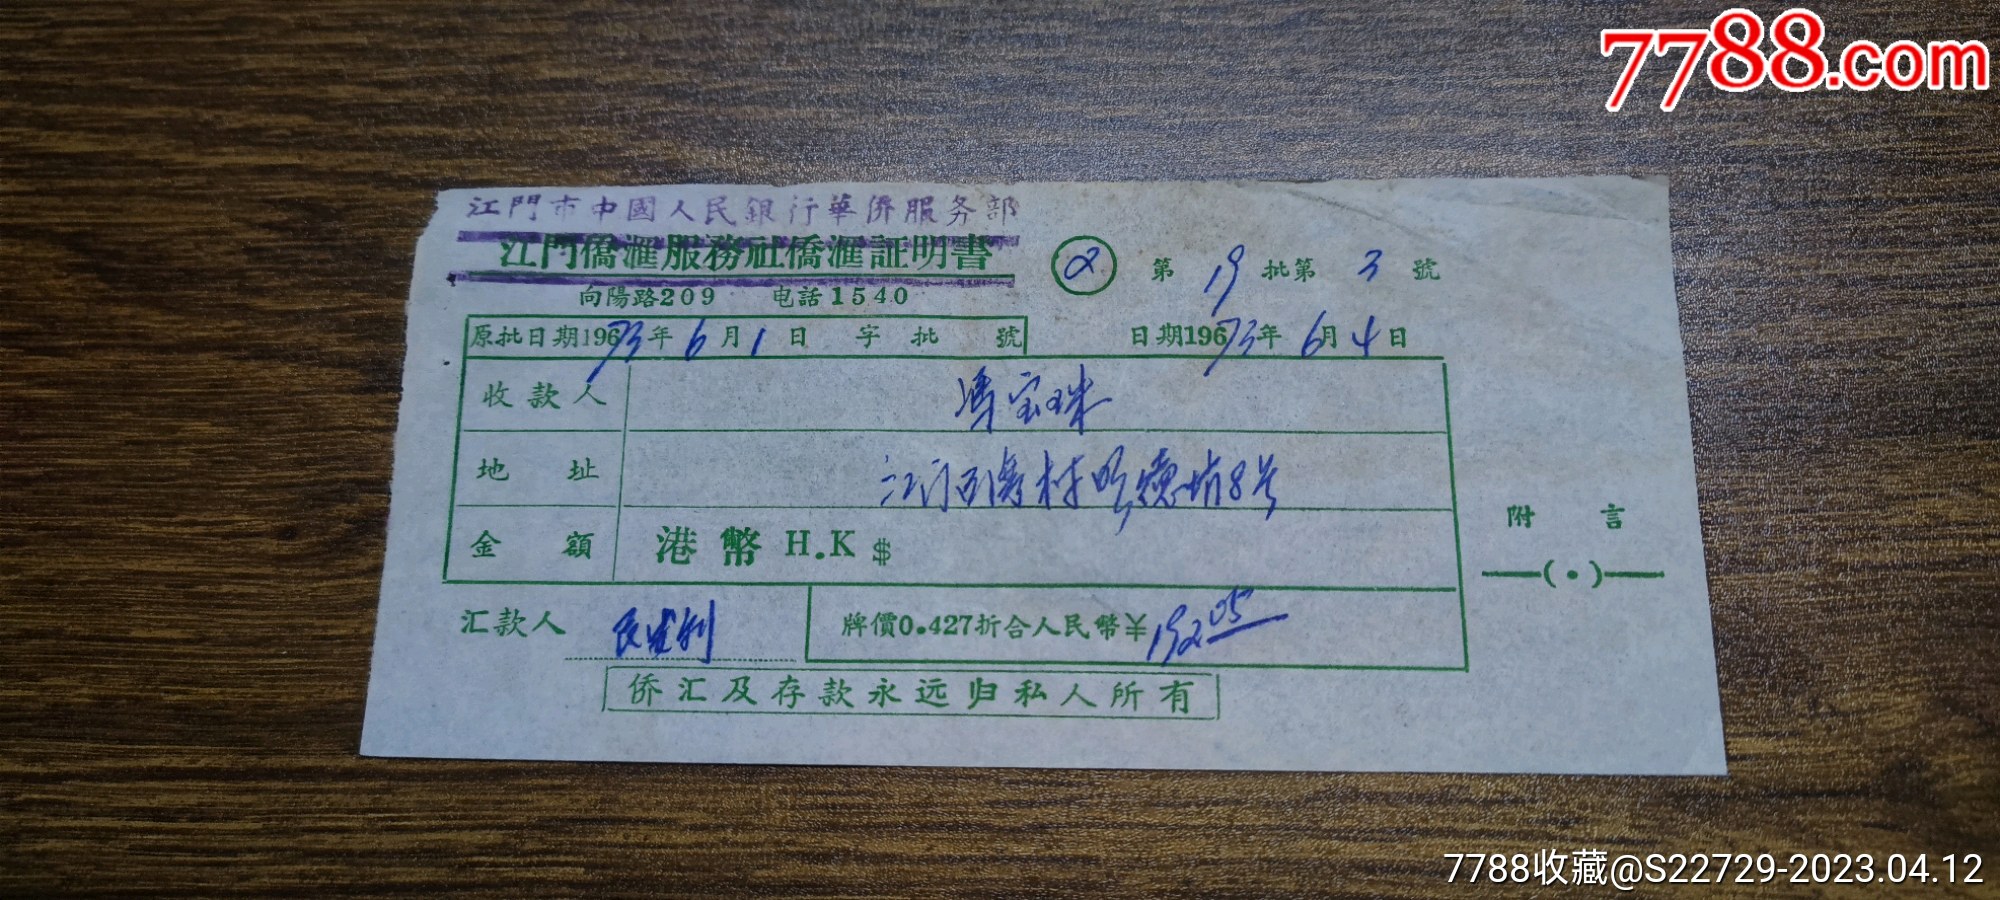 7788.com
江門市中國人民銀行華僑服务部
江門僑滙服務社僑滙証明書
② 第 19 批第 3 號
向陽路209 电話1540
原批日期1973年 6月 1日 字 批 號
日期1973年 6月 4日
收款人 馮宝珠
地 址 江门 村 8号
金 額 港幣 H.K $
附 言
汇款人
牌價0.427折合人民幣¥192.05
侨汇及存款永远归私人所有
7788收藏@S22729-2023.04.12